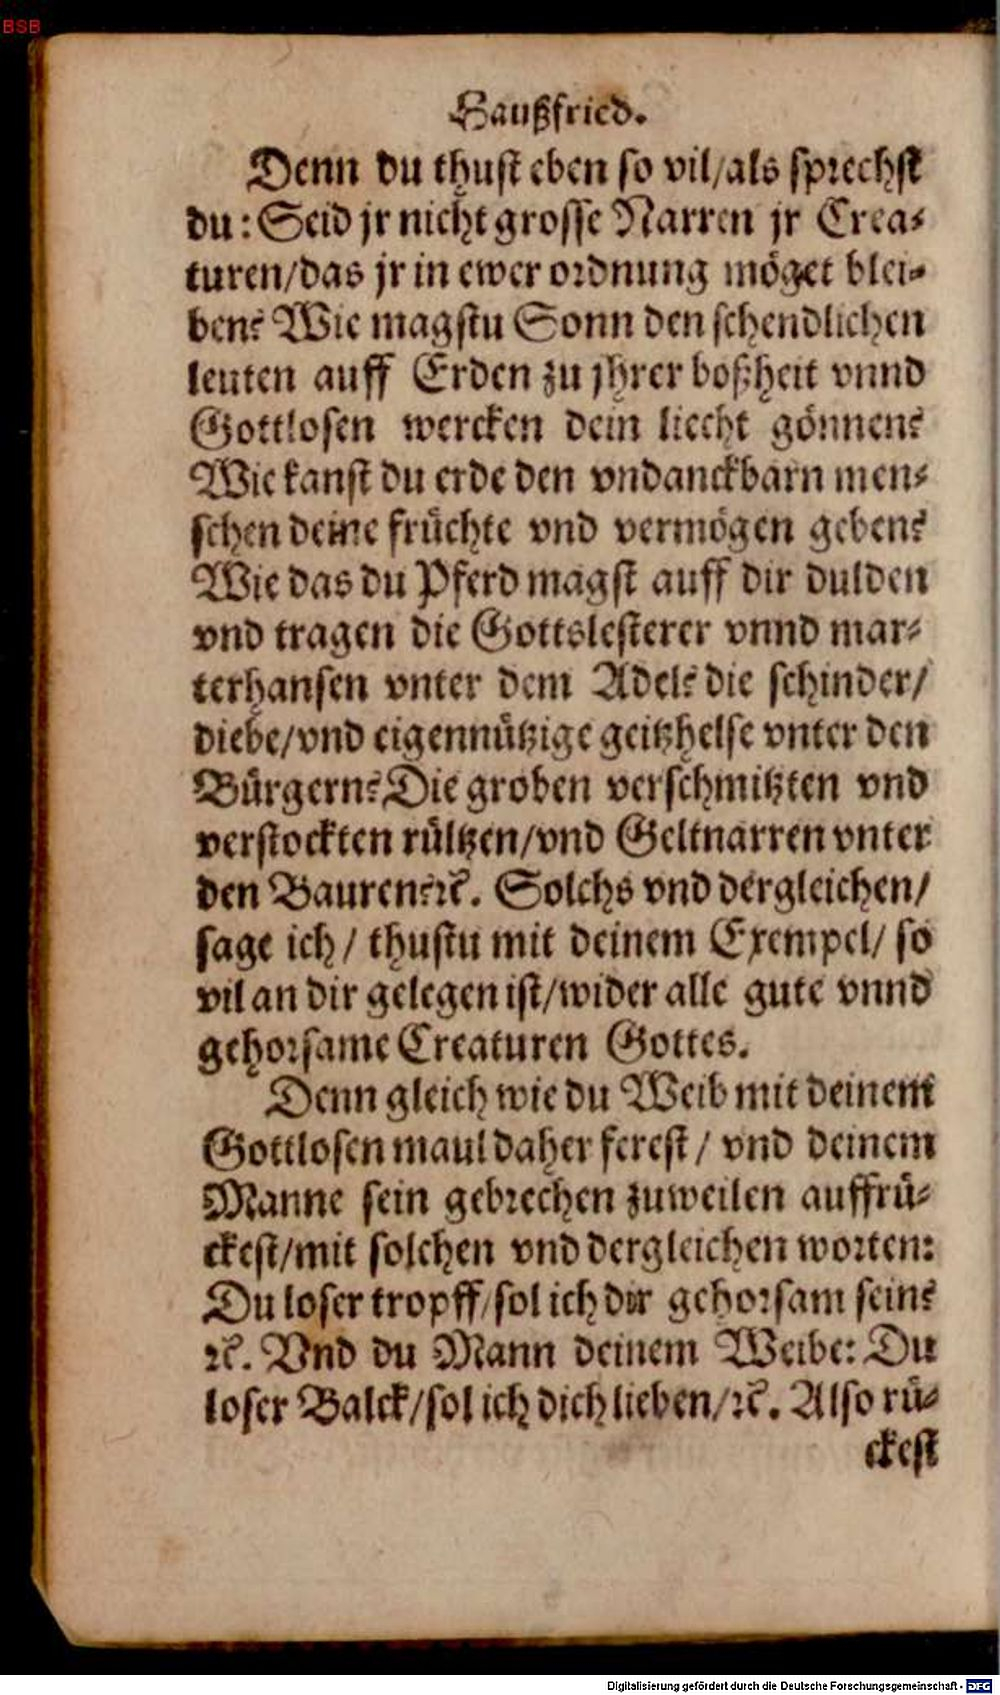 BSB
Haußfried.
Denn du thust eben so vil/als sprechst
du: Seid jr nicht grosse Narren jr Crea-
turen/das jr in ewer ordnung möget blei-
ben? Wie magstu Sonn den schendlichen
leuten auff Erden zu jhrer boßheit vnnd
Gottlosen wercken dein liecht gönnen?
Wie kanst du erde den vndanckbarn men-
schen deine früchte vnd vermögen geben?
Wie das du Pferd magst auff dir dulden
vnd tragen die Gottslesterer vnnd mar-
terhansen vnter dem Adel? die schinder/
diebe/vnd eigennützige geitzhelse vnter den
Bürgern? Die groben verschmitzten vnd
verstockten rültzen/vnd Geltnarren vnter
den Bauren? ꝛc. Solchs vnd dergleichen/
sage ich/ thustu mit deinem Exempel/ so
vil an dir gelegen ist/wider alle gute vnnd
gehorsame Creaturen Gottes.
Denn gleich wie du Weib mit deinem
Gottlosen maul daher ferest/ vnd deinem
Manne sein gebrechen zuweilen auffrü-
ckest/mit solchen vnd dergleichen worten:
Du loser tropff/sol ich dir gehorsam sein?
ꝛc. Vnd du Mann deinem Weibe: Du
loser Balck/sol ich dich lieben/ꝛc. Also rü-
ckest
Digitalisierung gefördert durch die Deutsche Forschungsgemeinschaft - DFG